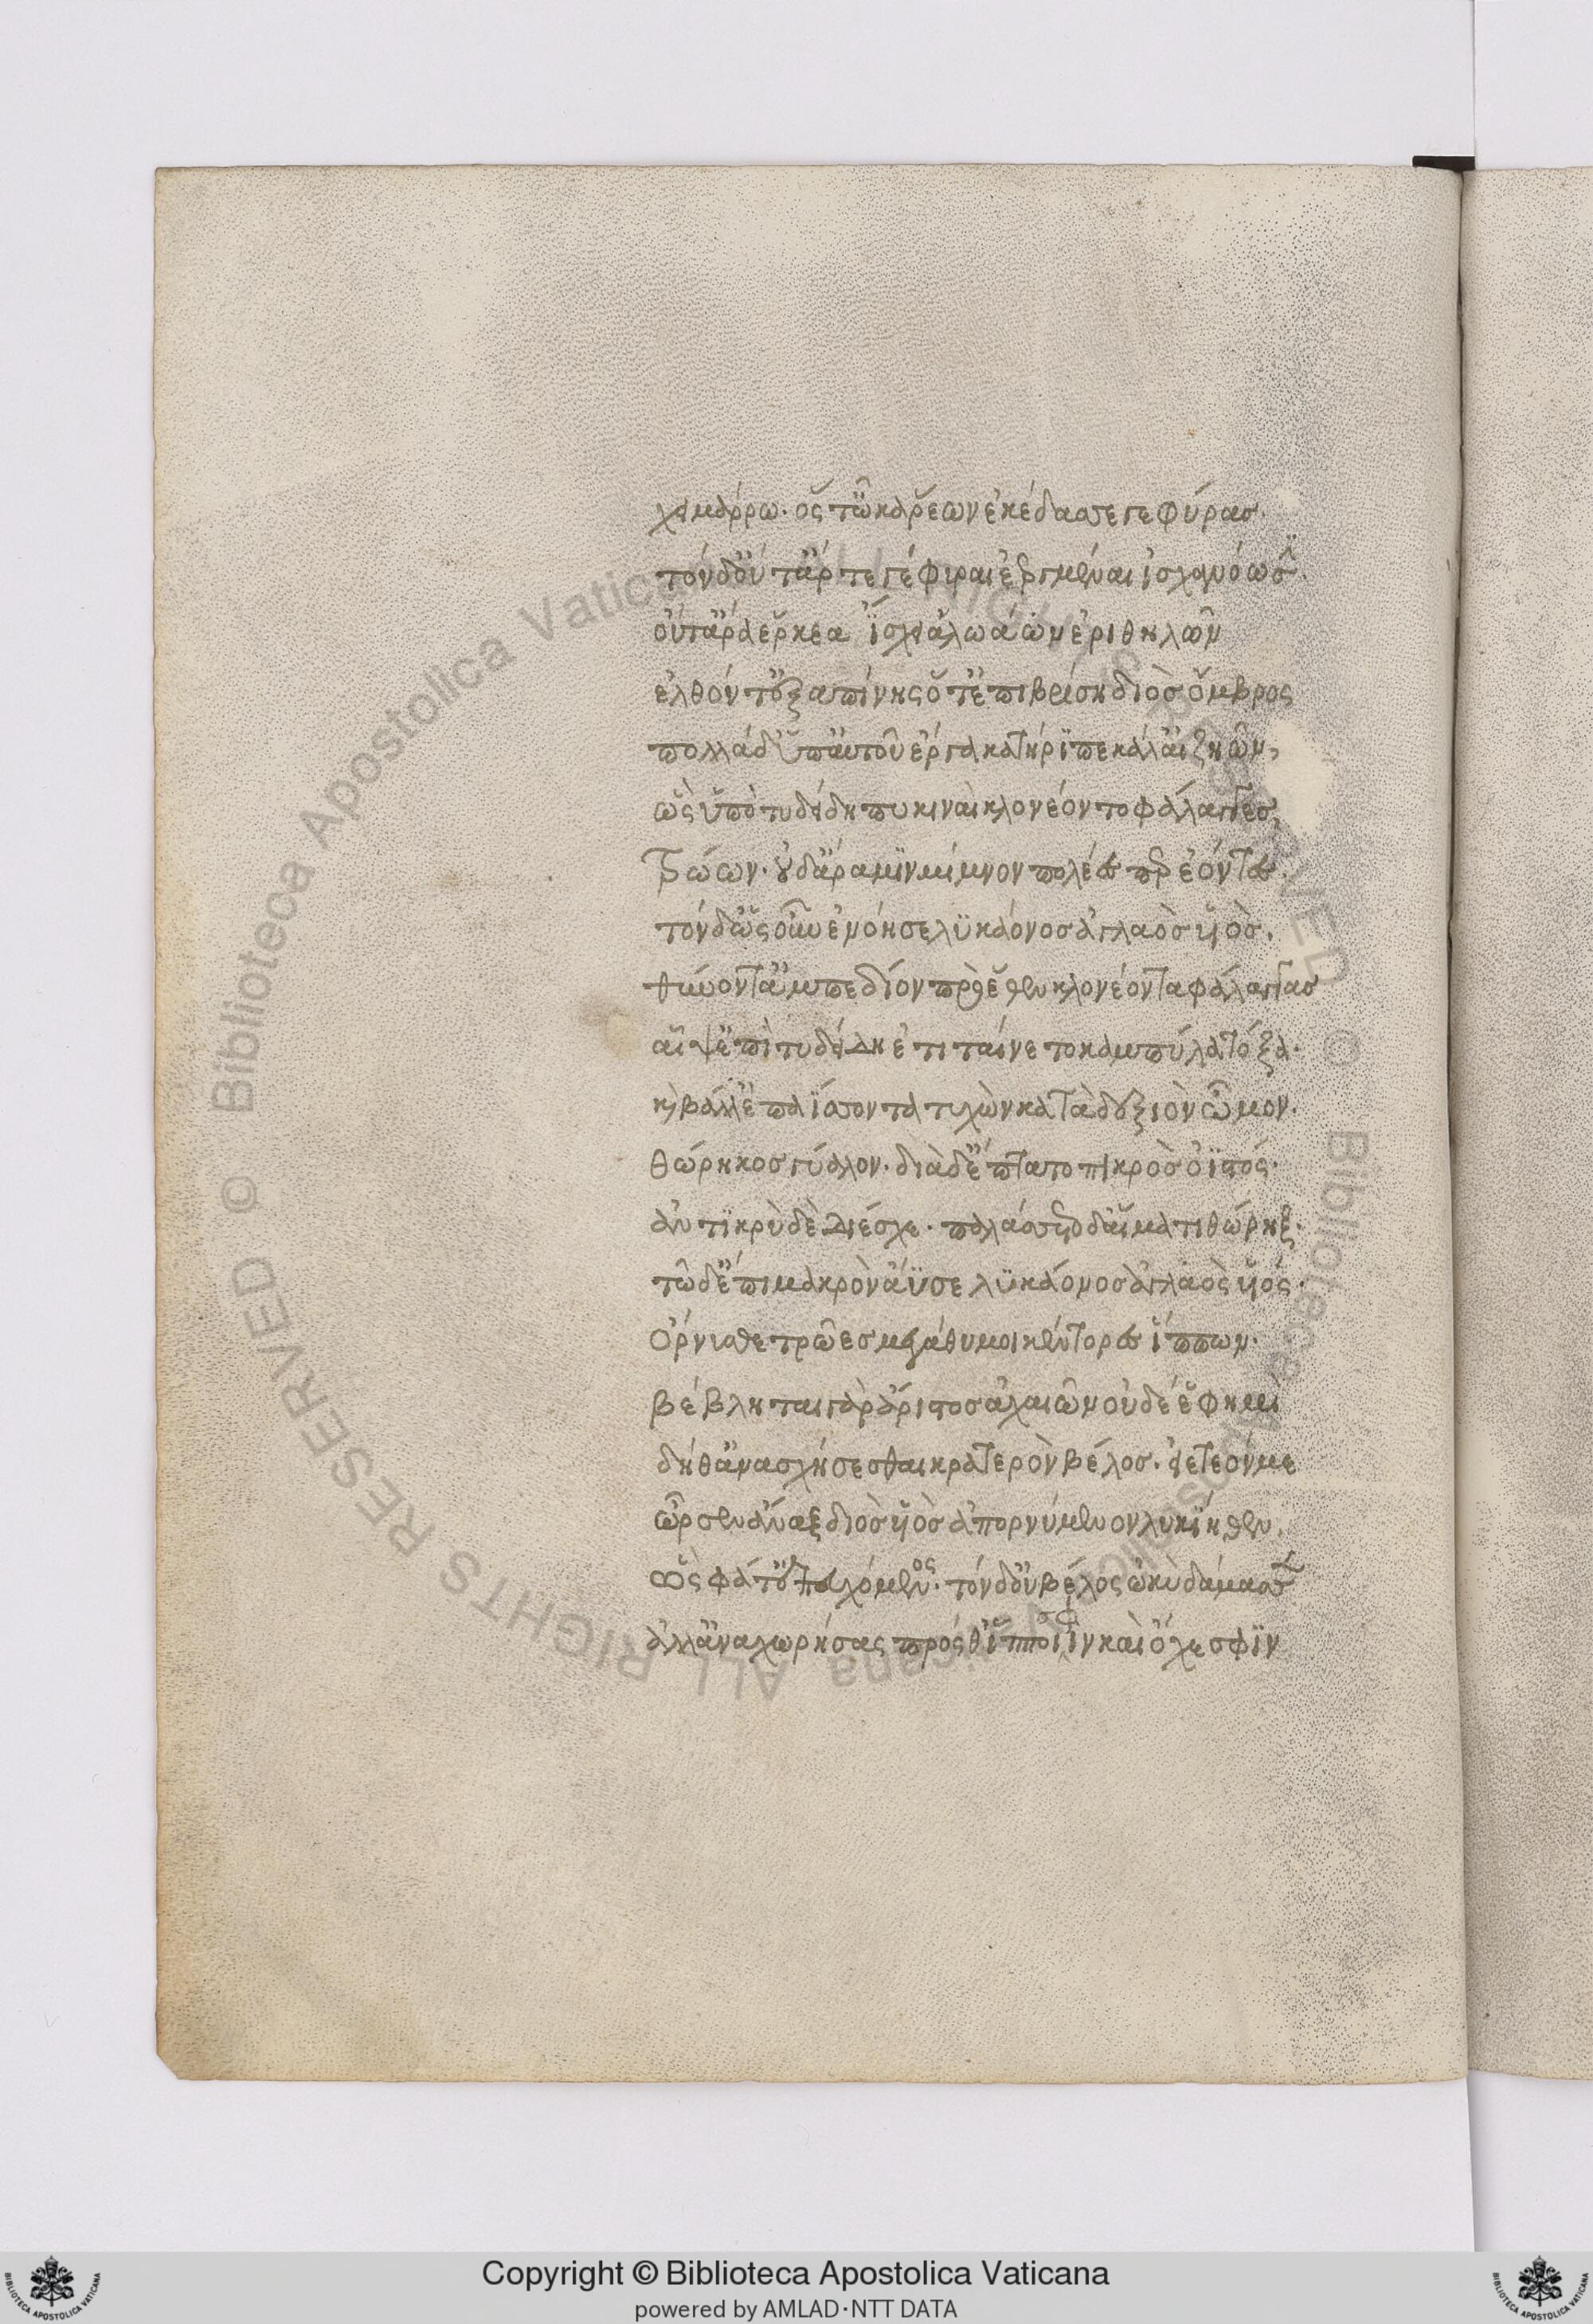 χειμάρρω. ὅς τ' ὦκα ῥέων ἐκέδασσε γεφύρας.
τὸν δ' οὔτ' ἄρ τε γέφιραι ἐεργμέναι ἰσχανόωσϊ.
οὔτ' ἄρα ἕρκεα ΐσχει ἀλωάων ἐριθηλῶν
ἐλθόντ' ἐξαπίνης ὅτ' ἐπιβρίση διὸς ὄμβρος
πολλὰ δ' ὑπ' αὐτοῦ ἔργα κατήρϊπε κάλ' αἰζηῶν,
ὣς ὑπὸ τυδείδη πυκιναὶ κλονέοντο φάλαγγες,
Τρώων. οὐδ' ἄρα μϊν μίμνον πολέες περ ἐόντες.
τὸν δ' ὡς οὖν ἐνόησε λϋκάονος ἀγλαὸς υἱὸς.
θύνοντ' ἂμ πεδίον πρὸ ἕθεν κλονέοντα φάλαγγας
αἶψ' ἐπὶ τυδείδη ἐτιταίνετο καμπύλα τόξα.
καὶ βάλλ' ἐπαΐσσοντα τυχὼν κατὰ δεξιὸν ὦμον.
θώρηκος γύαλον. διὰ δ' ἔπτατο πικρὸς ὀϊστός.
ἀντϊκρὺ δὲ διέσχε. παλάσσετο δ' αἵματι θώρηξ.
τῶ δ' ἐπι μακρὸν ἄϋσε λϋκάονος ἀγλαὸς υἱός.
Ὄρνυσθε τρῶες μεγάθυμοι κέντορες ἵππων.
βέβληται γὰρ ἄριστος ἀχαιῶν οὐδέ ἕ φημὶ
δήθ' ἀνασχήσεσθαι κρατερὸν βέλος. εἰ ἐτεόν με
ὦρσεν ἄναξ διὸς υἱὸς ἀπορνύμενον λυκίηθεν.
Ὣς φάτ' ἐπευχόμενος. τὸν δ' οὐ βέλος ὠκὺ δάμασσεν
ἀλλ' ἀναχωρήσας πρόσθ' ἵπποιϊν καὶ ὄχεσφϊν
Copyright © Biblioteca Apostolica Vaticana
powered by AMLAD·NTT DATA